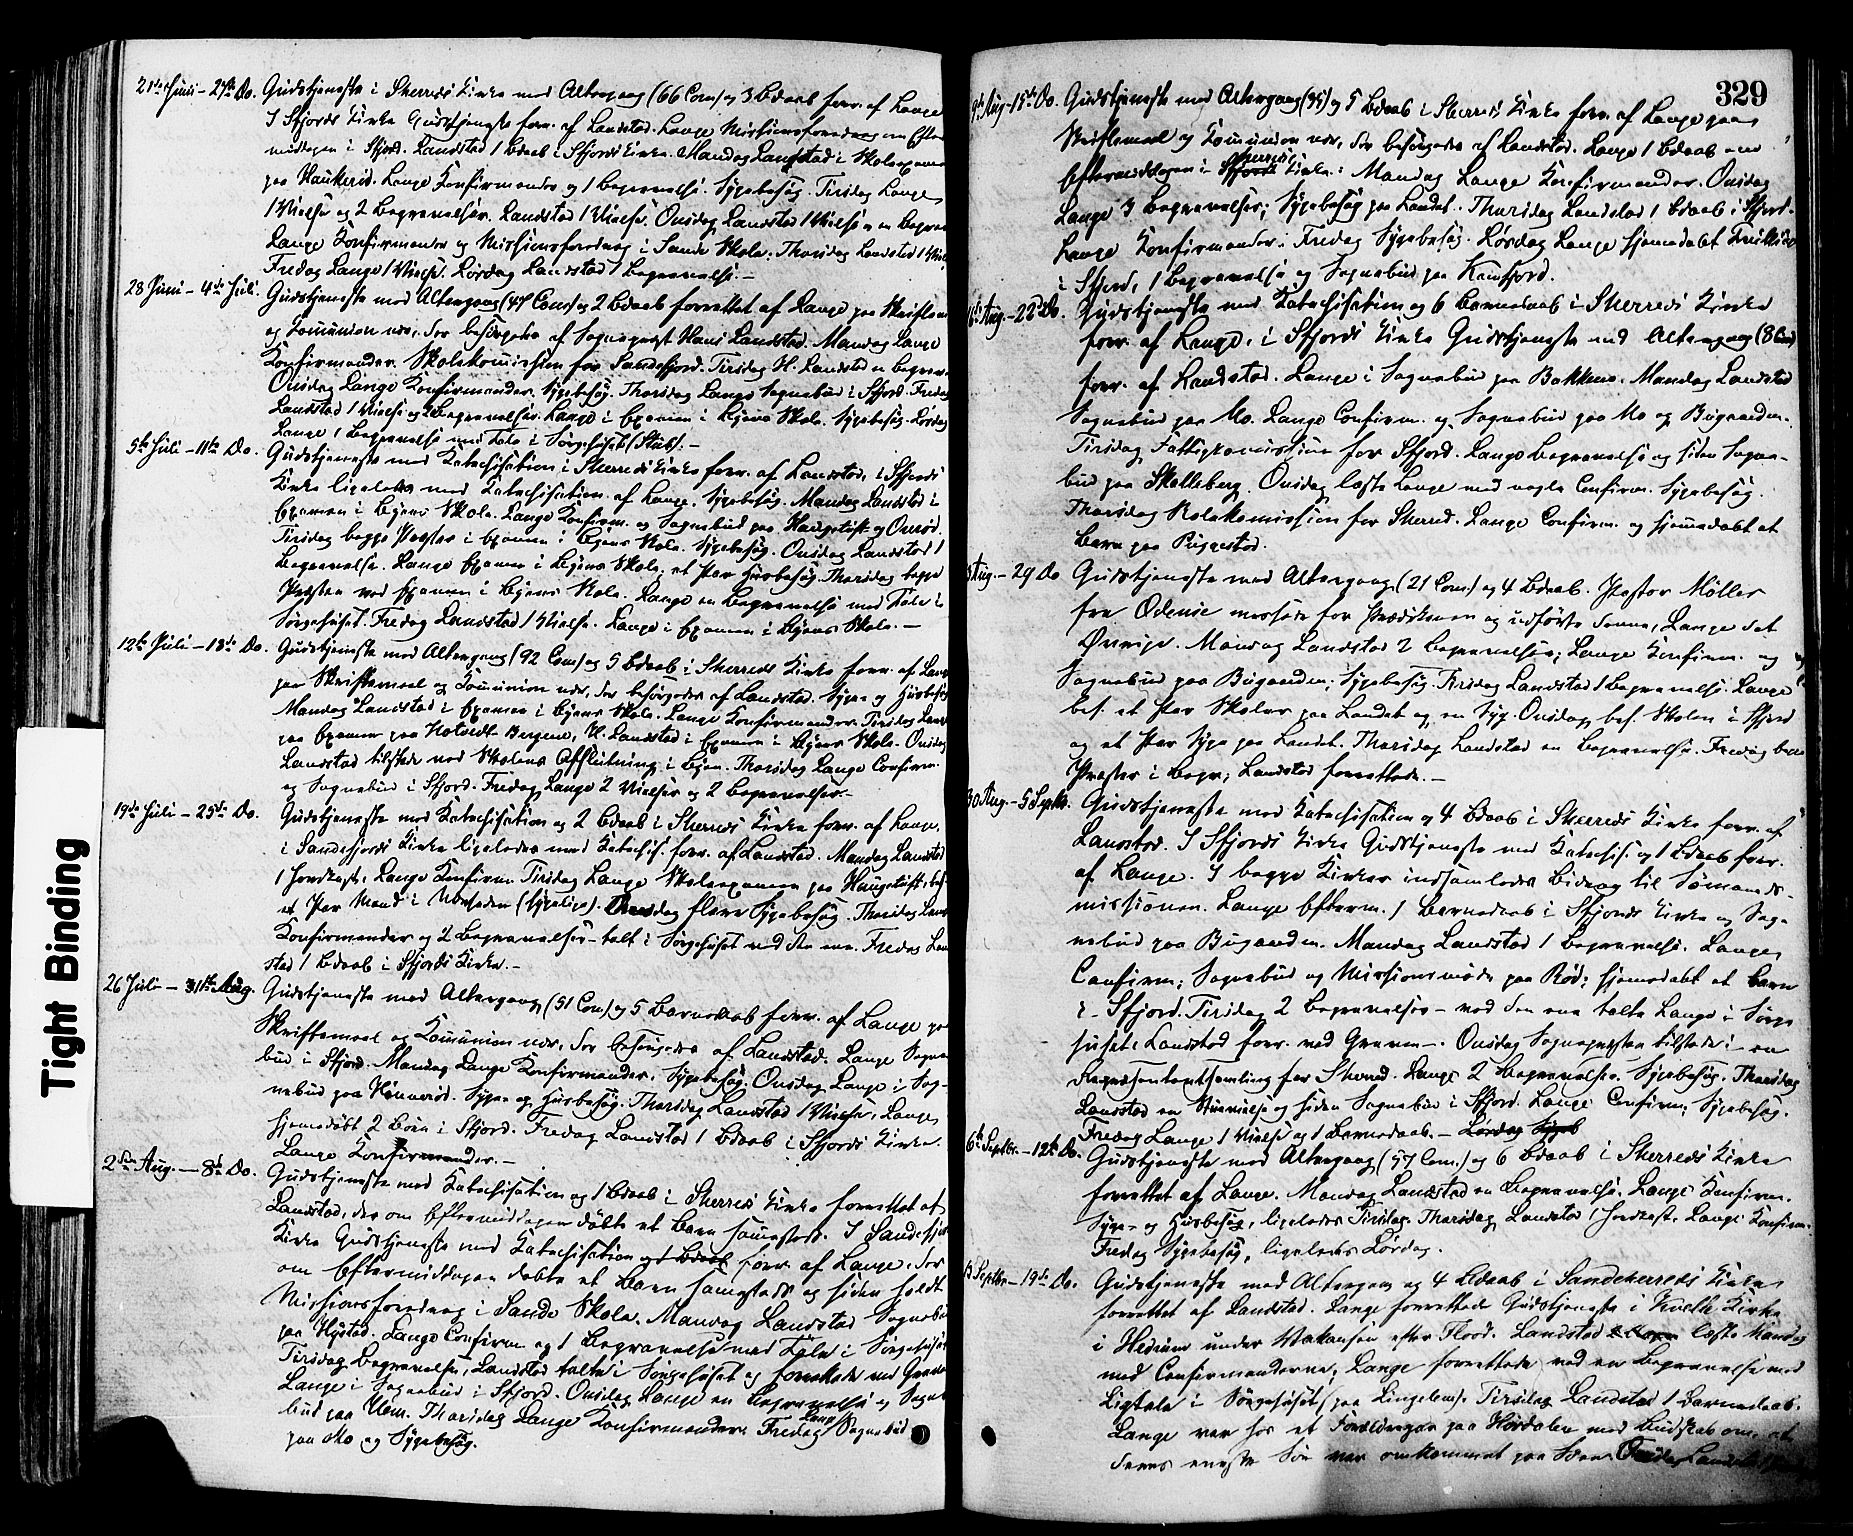 21de Juni - 27de Do. Gudstjeneste i Sherreds Kirke med Altergang (66 Com) og 3 Bdaab forr. af Lange
I Sfjords Kirke Gudstjeneste forr. af Landstad. Lange Missionsforedrag om Efter
middagen i Sfjord. Landstad 1 Bdaab i Sfjords Kirke. Mandag Landstad i Skoleexamen
paa Haukerød. Lange Konfirmander og 1 Begravelse. Sygebesøg. Tirsdag Lange
1 Vielse og 2 Begravelser. Landstad 1 Vielse. Onsdag Landstad 1 Vielse o en Begra
Lange Konfirmander og Missionsforedrag i Sande Skole. Thorsdag Landstad 1 Viel
Fredag Lange 1 Vielse. Lørdag Landstad 1 Begravelse. -
28 Juni - 4de Juli. Gudstjeneste med Altergang (47 Com) og 2 Bdaab forrettet af Lange paa Skriftem
og Kommunion nær, der besørgedes af Sognepræst Hans Landstad. Mandag Lange
Konfirmander. Skolekomission for Sandefjord. Tirsdag H. Landstad en Begrav
Onsdag Lange Konfirmander. Sygebesøg. Thorsdag Lange Sognebud i Sfjord. Fredag
Landstad 1 Vielse og 2 Begravelser. Lange i Examen i Byens Skole. Sygebesøg. Lørdag
Lange 1 Begravelse med Tale i Sørgehuset (Stub). -
5te Juli - 11te Do. Gudstjeneste med Katechisation i Sherreds Kirke forr. af Landstad, i Sfjords
Kirke ligeledes med Katechisation af Lange. Sygebesøg. Mandag Landstad i
Examen i Byens Skole. Lange Konfirm. og Sognebud paa Haugetuft og Overød.
Tirsdag begge Præster i Examen i Byens Skole. Sygebesøg. Onsdag Landstad 1
Begravelse. Lange Examen i Byens Skole, et Par Husbesøg. Thorsdag begge
Præster ved Examen i Byens Skole. Lange en Begravelse med Tale i
Sørgehuset. Fredag Landstad 1 Vielse. Lange i Examen i Byens Skole. -
12te Juli - 18de Do. Gudstjeneste med Altergang (92 Com) og 5 Bdaab i Sherreds Kirke forr. af Lange
paa Skriftemaal og Kommunion nær, der besørgedes af Landstad. Syge- og Husbesøg
Mandag Landstad i Examen i Byens Skole. Lange Konfirmander. Tirsdag Lange
paa Examen paa Hotvedt Bergene, H. Landstad i Examen i Byens Skole. Onsdag
Landstad tilstede ved Skolens Afslutning i Byen. Thorsdag Lange Confirm.
og Sognebud i Sfjord. Fredag Lange 2 Vielser og 2 Begravelser. -
19de Juli - 25de Do. Gudstjeneste med Katechisation og 2 Bdaab i Sherreds Kirke forr. af Lange,
i Sandefjords Kirke ligeledes med Katechis. forr. af Landstad. Mandag Landstad
1 Jordkast, Lange Konfirm. Tirsdag Lange Skoleexamen paa Haugetuft, bes.
et Par Mænd i (sygelige). Onsdag flere Sygebesøg. Thorsdag Lange
Konfirmander og 2 Begravelser - talt i Sørgehuset ved den ene. Fredag Land
stad 1 Bdaab i Sfjords Kirke. -
26 Juli - 1ste Aug. Gudstjeneste med Altergang (51 Com) og 5 Barnedaab forr. af Lange paa
Skriftemaal og Kommunion nær, der besørgedes af Landstad. Lange Sogne
bud i Sfjord. Mandag Lange Konfirmander, Sygebesøg. Onsdag Lange i Sog-
nebud paa Hønnerød. Syge- og Husbesøg. Thorsdag Landstad 1 Vielse, Lange
hjemedøbt 2 Børn i Sfjord. Fredag Landstad 1 Bdaab i Sfjords Kirke.
Lange Konfirmander. -
2den Aug. - 8de Do. Gudstjeneste med Katechisation og 1 Bdaab i Sherreds Kirke forrettet af
Landstad, der om Eftermiddagen døbte et Barn sammesteds. I Sandefjords
Kirke Gudstjeneste med Katechisation og 1 Bdaab forr. af Lange, der
om Eftermiddagen døbte et Barn sammesteds og siden holdt
Missionsforedrag i Sande Skole. Mandag Landstad Sognebud
paa Hystad. Lange Confirm og 1 Begravelse med Tale i Sørgehuset
Tirsdag Begravelse, Landstad talte i Sørgehuset og forrettede ved Graven
Lange i Sognebud i Sfjord. Onsdag Lange en Begravelse og Sogne
bud paa Vem. Thorsdag Lange Konfirmander. Fredag Lange Sognebud
paa Mo og Sygebesøg.
329
9de Aug - 15de Do. Gudstjeneste med Altergang (35) og 5 Bdaab i Sherreds Kirke forr. af Lange paa
Skriftemaal og Kommunion nær, der besørgedes af Landstad. Lange 1 Bdaab om
Eftermiddagen i Sfjords Sherreds Kirke. Mandag Lange Konfirmander. Onsdag
Lange 3 Begravelser; Sygebesøg paa Landet. Thorsdag Landstad 1 Bdaab i Sfjord.
Lange Konfirmander. Fredag Sygebesøg. Lørdag Lange hjemedøbt Tvillinger
i Sfjord, 1 Begravelse og Sognebud paa Kamfjord.
16de Aug. - 22de Do. Gudstjeneste med Katechisation og 6 Barnedaab i Sherreds Kirke
forr. af Lange, i Sfjords Kirke Gudstjeneste med Altergang (8 Com)
forr. af Landstad. Lange i Sognebud paa Bakkene. Mandag Landstad
Sognebud paa Mo. Lange Confirm. og Sognebud paa Mo og Bugaarden.
Tirsdag Fattigkomission for Sfjord. Lange Begravelse og siden Sogne-
bud paa Skolleberg. Onsdag læste Lange med nogle Confirm. Sygebesøg.
Thorsdag Skolekomission for Sherred. Lange Confirm. og hjemedøbt et
Barn paa Puggestad.
Aug. - 29 Do Gudstjeneste med Altergang (21 Com) og 4 Bdaab. Pastor Møller
fra Odense messede for Prædikenen og udførte denne, Lange det
Øvrige. Mandag Landstad 2 Begravelser, Lange Konfirm. og
Sognebud paa Bugaarden; Sygebesøg. Tirsdag Landstad 1 Begravelse. Lange
bes. et Par Skoler paa Landet og en Syg. Onsdag bes. Skolen i Sfjord
og et Par Syge paa Landet. Thorsdag Landstad en Begravelse. Fredag begge
Præster i Begr; Landstad forrettede. -
30 Aug. - 5 Septbr. Gudstjeneste med Katechisation og 4 Bdaab i Sherreds Kirke forr. af
Landstad. I Sfjords Kirke Gudstjeneste med Katechis. og 1 Bdaab forr.
af Lange. I begge Kirker indsamledes Bidrag til Sømands-
missionen. Lange Efterm. 1 Barnedaab i Sfjords Kirke og Sog-
nebud paa Bugaarden. Mandag Landstad 1 Begravelse. Lange
Confirm; Sognebud og Missionsmøde paa Rød; hjemedøbt et Barn
i Sfjord. Tirsdag 2 Begravelser - ved den ene talte Lange i Sørge
huset, Landstad forr. ved Graven -. Onsdag Sognepræsten tilstede i en
Repræsentantsamling for Sherred. Lange 2 Begravelser. Sygebesøg. Thorsdag
Landstad en Vielse og siden Sognebud i Sfjord. Lange Confirm; Sygebesøg.
Fredag Lange 1 Vielse og 1 Barnedaab. - Lørdag Sygeb
6te Septbr. - 12te Do. Gudstjeneste med Altergang (57 Com.) og 6 Bdaab i Sherreds Kirke
forrettet af Lange. Mandag Landstad en Begravelse. Lange Konfirm.
Syge- og Husbesøg, ligeledes Tirsdag. Thorsdag Landstad 1 Jordkast, Lange Konfirm.
Fredag Sygebesøg, ligeledes Lørdag.
13 Septbr - 19de Do. Gudstjeneste med Altergang og 4 Bdaab i Sandeherreds Kirke
forrettet af Landstad. Lange forrettede Gudstjeneste i Kvelle Kirke
i Hedrum under Vakansen efter Flood. Landstad læste Mandag
med Confirmanderne; Lange forrettede ved en Begravelse med
Ligtale i Sørgehuset (paa Lingelem). Tirsdag Landstad 1 Barnedaab.
Lange var hos et Forældrepar paa Hørdalen med Budskab om, at
deres eneste Søn var omkommet paa Søen. Tirsdag Landstad
Tight Binding